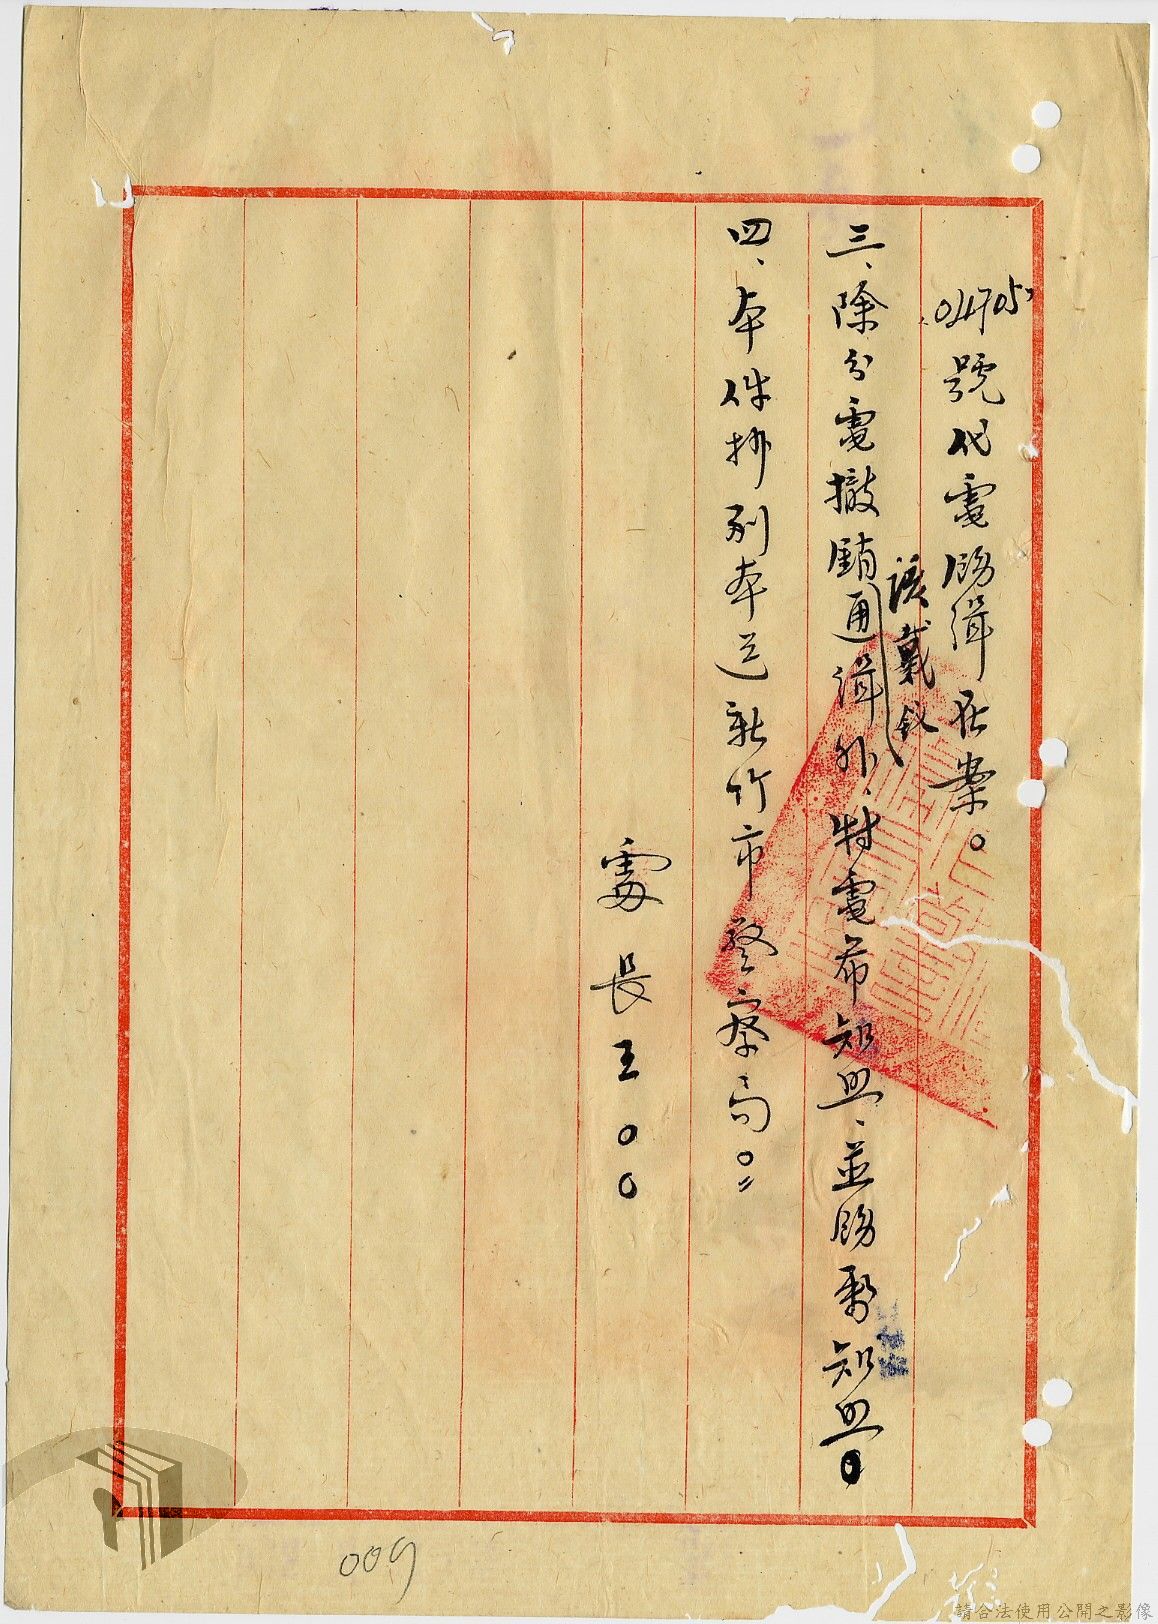 04705號代電飭緝在案。
三、除分電撤銷該戴釵通緝外、特電希知照、並飭屬知照。
四、本件抄副本送新竹市警察局。〃
處長王〇〇
009
請合法使用公開之影像